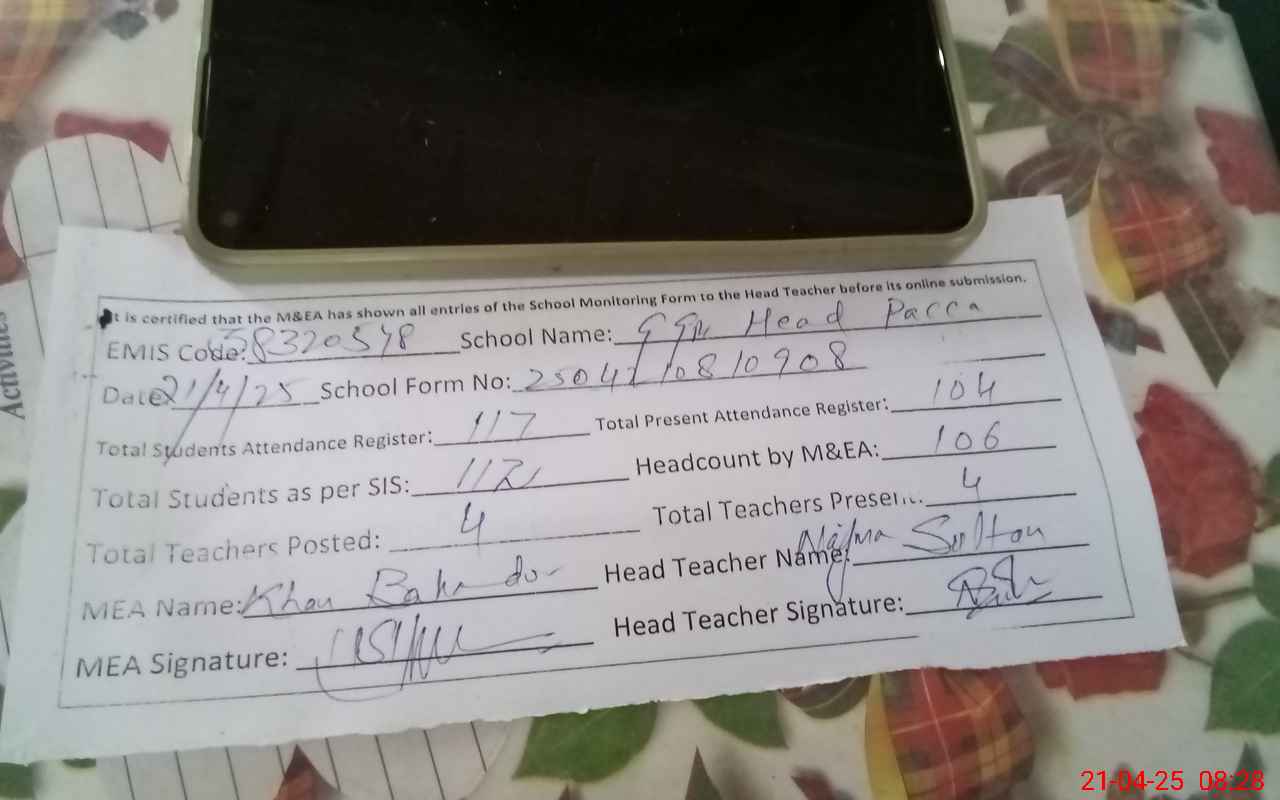 It is certified that the M&EA has shown all entries of the School Monitoring Form to the Head Teacher before its online submission.
EMIS Code: 38320548 School Name: GGPS Head Pacca
Date 21/4/25 School Form No: 250421 10810908
Total Students Attendance Register: 117 Total Present Attendance Register: 104
Total Students as per SIS: 112 Headcount by M&EA: 106
Total Teachers Posted: 4 Total Teachers Present: 4
MEA Name: Khan Bahador Head Teacher Name: Najma Sultan
MEA Signature: Head Teacher Signature:
Activities
21-04-25 08:28